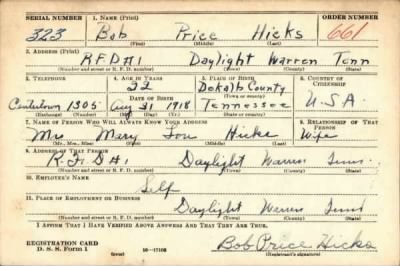 SERIAL NUMBER 1. NAME (Print) ORDER NUMBER
323 Bob Price Hicks 661
(First) (Middle) (Last)
2. ADDRESS (Print)
R.F.D #1 Daylight Warren Tenn
(Number and street or R. F. D. number) (Town) (County) (State)
3. TELEPHONE 4. AGE IN YEARS 5. PLACE OF BIRTH 6. COUNTRY OF CITIZENSHIP
22 DeKalb County
DATE OF BIRTH (Town or county)
Centertown 1305 Aug 31 1918 Tennessee U.S.A.
(Exchange) (Number) (Mo.) (Day) (Yr.) (State or country)
7. NAME OF PERSON WHO WILL ALWAYS KNOW YOUR ADDRESS 8. RELATIONSHIP OF THAT PERSON
Mrs Mary Lou Hicks Wife
(Mr., Mrs., Miss) (First) (Middle) (Last)
9. ADDRESS OF THAT PERSON
R.F.D #1 Daylight Warren Tenn.
(Number and street or R. F. D. number) (Town) (County) (State)
10. EMPLOYER'S NAME
Self
11. PLACE OF EMPLOYMENT OR BUSINESS
Daylight Warren Tenn
(Number and street or R. F. D. number) (Town) (County) (State)
I AFFIRM THAT I HAVE VERIFIED ABOVE ANSWERS AND THAT THEY ARE TRUE.
REGISTRATION CARD
D. S. S. Form 1 (over) Bob Price Hicks
(Registrant's signature)